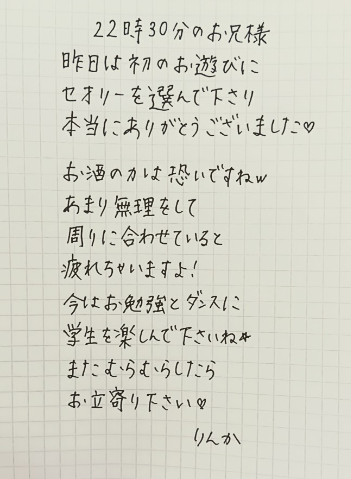 22時30分のお兄様
昨日は初のお遊びに
セオリーを選んで下さり
本当にありがとうございました♡
お酒の力は恐いですねw
あまり無理をして
周りに合わせていると
疲れちゃいますよ!
今はお勉強とダンスに
学生を楽しんで下さいね☆
またむらむらしたら
お立寄り下さい♡
りんか